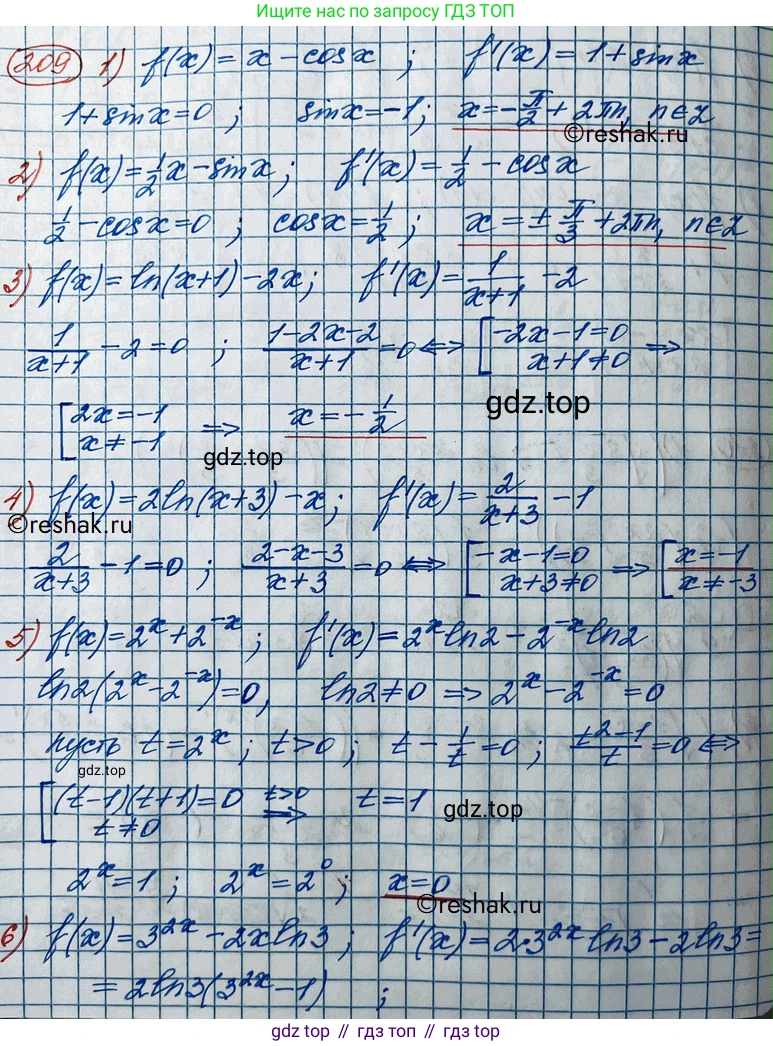 Ищите нас по запросу ГДЗ ТОП
209 1) f(x) = x - cosx ; f'(x) = 1 + sinx
1 + sinx = 0 ; sinx = -1 ; x = -π/2 + 2πn, n∈Z
©reshak.ru
2) f(x) = 1/2 x - sinx ; f'(x) = 1/2 - cosx
1/2 - cosx = 0 ; cosx = 1/2 ; x = ± π/3 + 2πn, n∈Z
3) f(x) = ln(x+1) - 2x ; f'(x) = 1/(x+1) - 2
1/(x+1) - 2 = 0 ; (1-2x-2)/(x+1) = 0 ⇔ [ -2x-1=0 x+1≠0 ⇒
[ 2x=-1 x≠-1 ⇒ x = - 1/2
gdz.top
gdz.top
4) f(x) = 2ln(x+3) - x ; f'(x) = 2/(x+3) - 1
©reshak.ru
2/(x+3) - 1 = 0 ; (2-x-3)/(x+3) = 0 ⇔ [ -x-1=0 x+3≠0 ⇒ [ x=-1 x≠-3
5) f(x) = 2^x + 2^-x ; f'(x) = 2^x ln2 - 2^-x ln2
ln2(2^x - 2^-x) = 0, ln2≠0 ⇒ 2^x - 2^-x = 0
пусть t = 2^x ; t>0 ; t - 1/t = 0 ; (t²-1)/t = 0 ⇔
gdz.top
[ (t-1)(t+1)=0 t≠0 t>0 ⇒ t = 1
gdz.top
2^x = 1 ; 2^x = 2^0 ; x = 0
©reshak.ru
6) f(x) = 3^2x - 2xln3 ; f'(x) = 2·3^2x ln3 - 2ln3 =
= 2ln3(3^2x - 1) ;
gdz.top // гдз топ // gdz.top